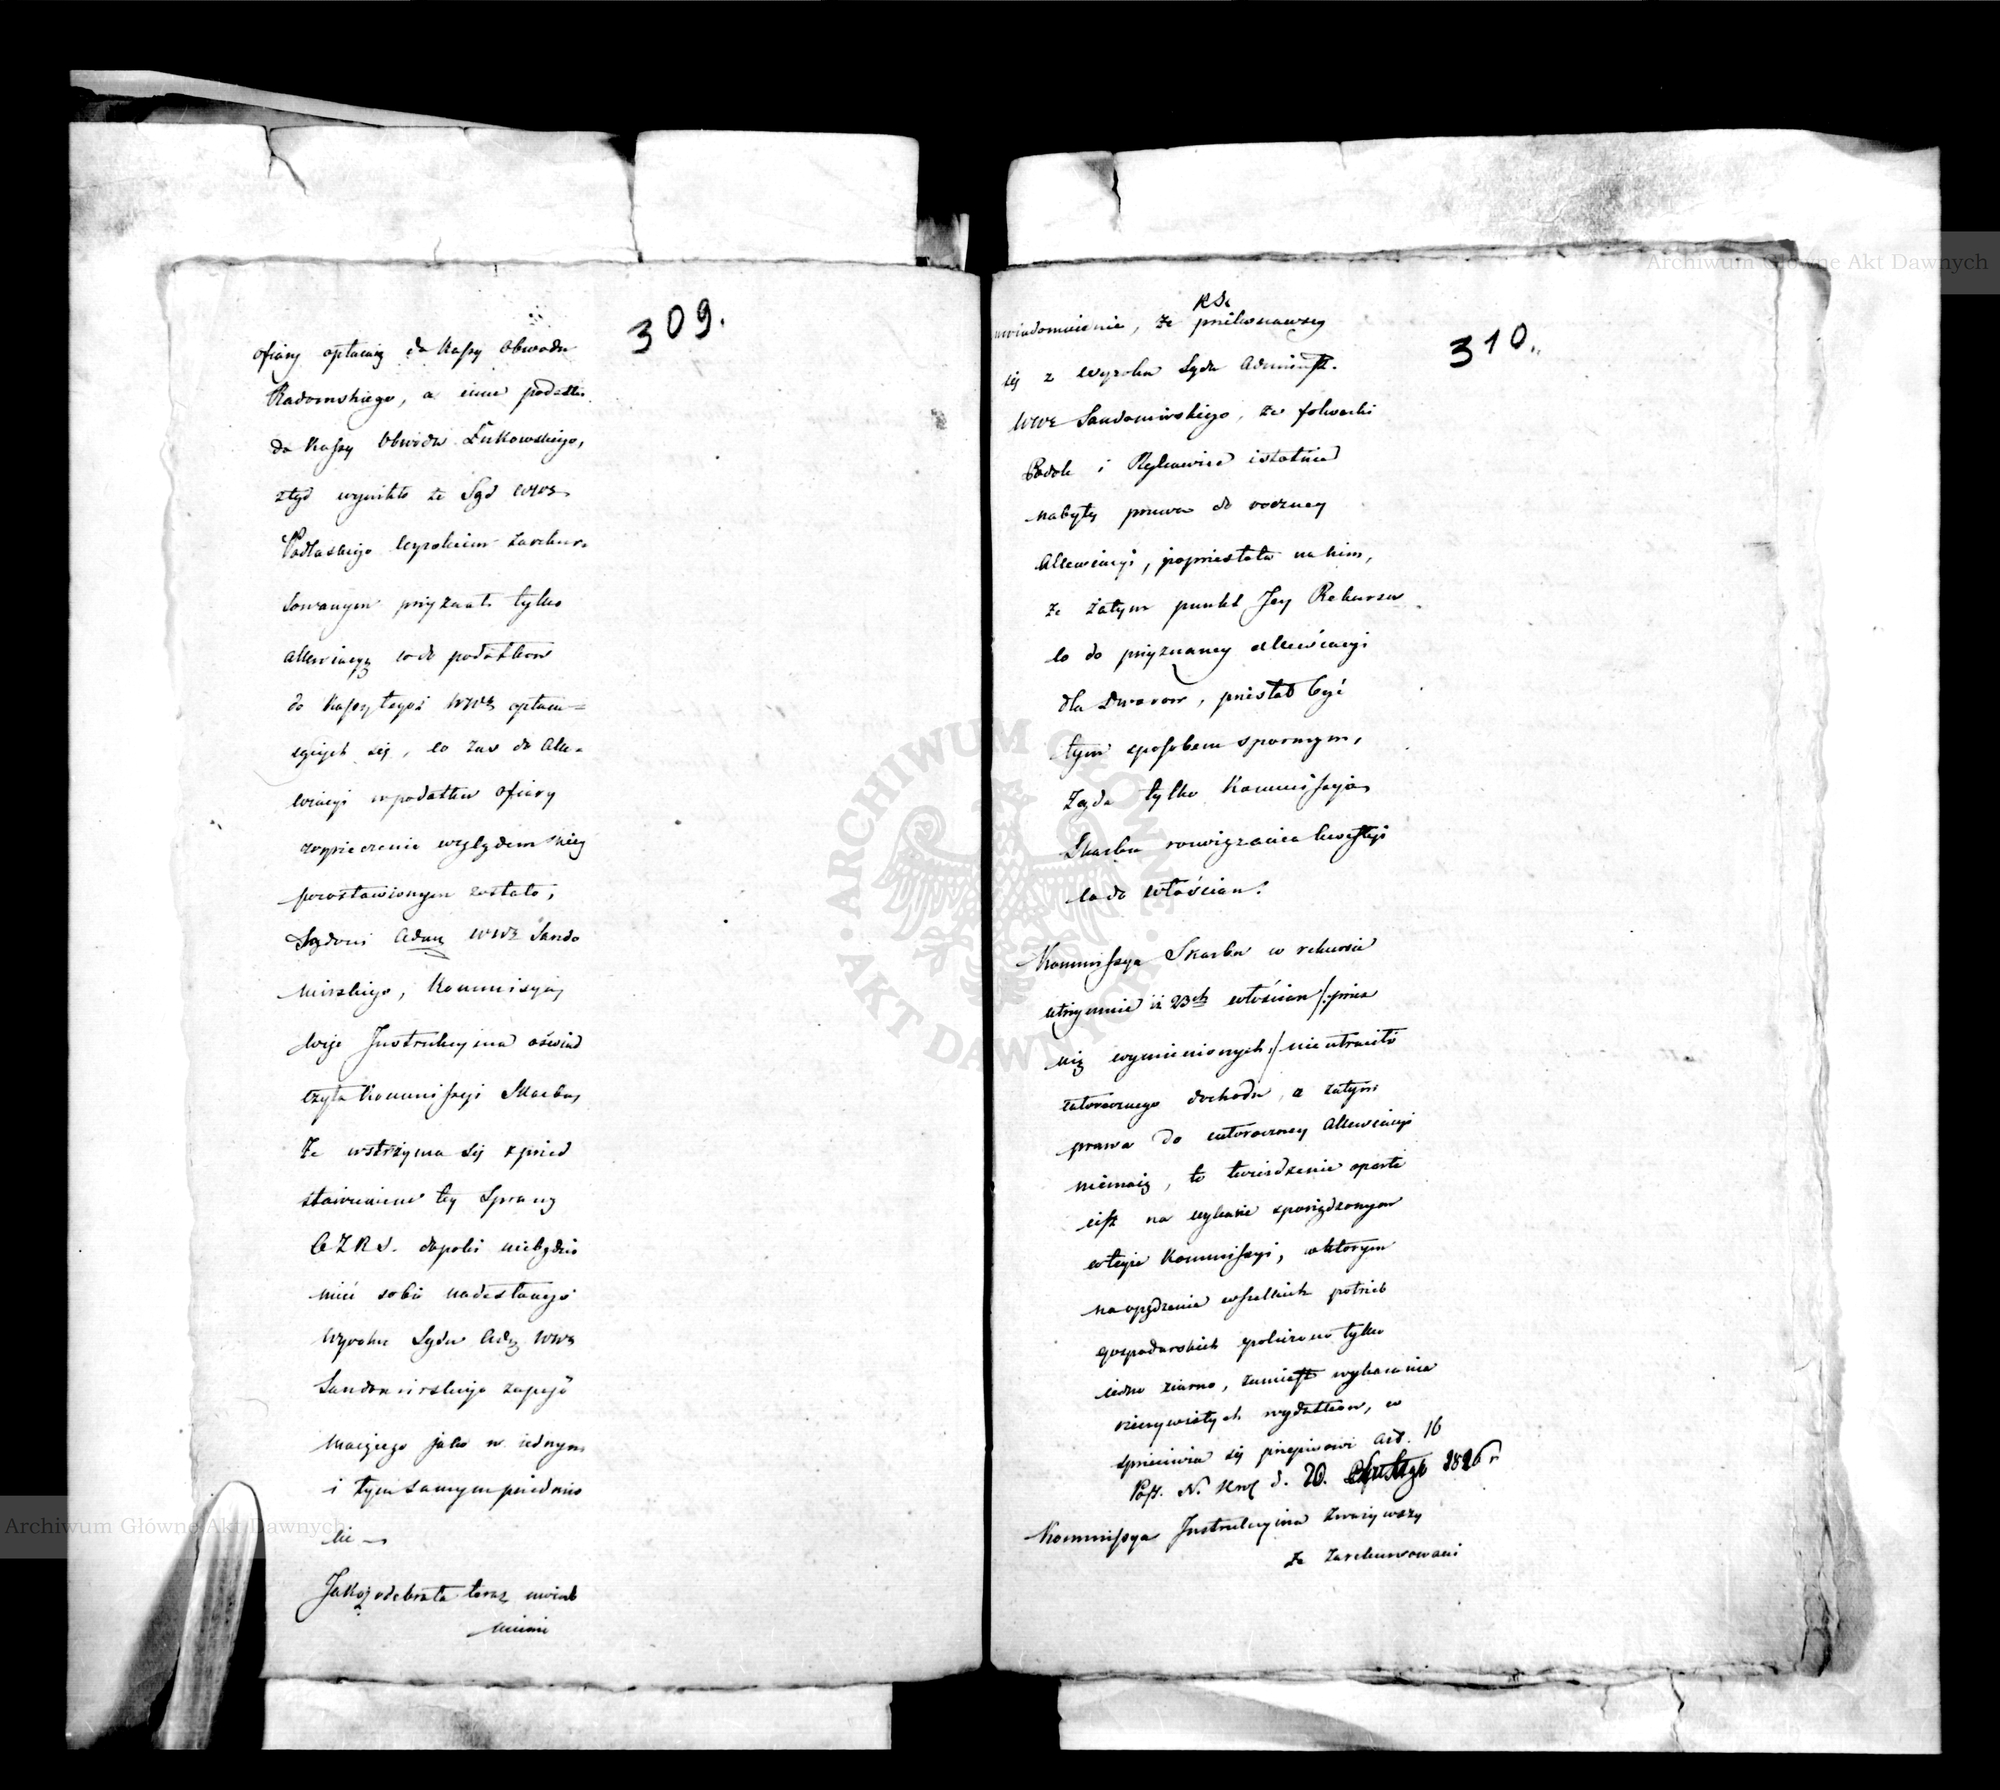 309.
ofiary opłacaią do Kassy Obwodu
Radomskiego, a inne podatki
do Kassy Obwodu Łukowskiego,
ztąd wynikło że Sąd WWa
Podlaskiego Wyrokiem zarekur-
sowanym przyznał tylko
allewiacyą co do podatków
do Kassy tegoż WWa opłaca=
iących się, co zaś do Alle-
wiacyi w podatku ofiary
względem niey
pozostawionym zostało;
Sądowi Admu WWa Sando
mirskiego, Kommissya
Instrukcyina oświad
czyła Kommissyi Skarbu,
że wstrzyma się z przed
stawieniem tey Sprawy
dopóki niebędzie
mieć sobie nadesłanego
Wyroku Sądu Adm WWa
Sandomirskiego
jako w iednym
i tym samym przedmio
cie —
Jakoż odebrała teraz uwiad
mienie
310.
KS.
uwiadomienie, że przekonawszy
się z Wyroku Sądu Administ.
WWa Sandomirskiego, że folwarki
i istotnie
nabyły prawa do roczney
Allewiacyi, poprzestała na nim,
że zatym punkt Jey Rekursu
co do przyznaney allewiacyi
dla Dworów, przestał być
tym sposobem spornym,
Żąda tylko Kommissya
Skarbu rozwiązania kwestyi
co do włościan.
Kommissya Skarbu w rekursie
utrzymuie iż 23ch włościan /:przez
nią wymienionych:/ nie utraciło
całorocznego dochodu, a zatym
prawa do całoroczney Allewiacyi
niemaią, to twierdzenie oparte
iest na wykazie sporządzonym
w teyże Kommissyi, w którym
na opędzenie wszelkich potrzeb
gospodarskich policzono tylko
iedno ziarno, zamiast wykazania
rzeczywistych wydatków, co
sprzeciwia się przepisowi Art. 16
Post. N. Król d. 20. 1826 r
Kommissya Instrukcyina zważywszy
że zarekursowani
Archiwum Główne Akt Dawnych
ARCHIWUM GŁÓWNE AKT DAWNYCH
Archiwum Główne Akt Dawnych